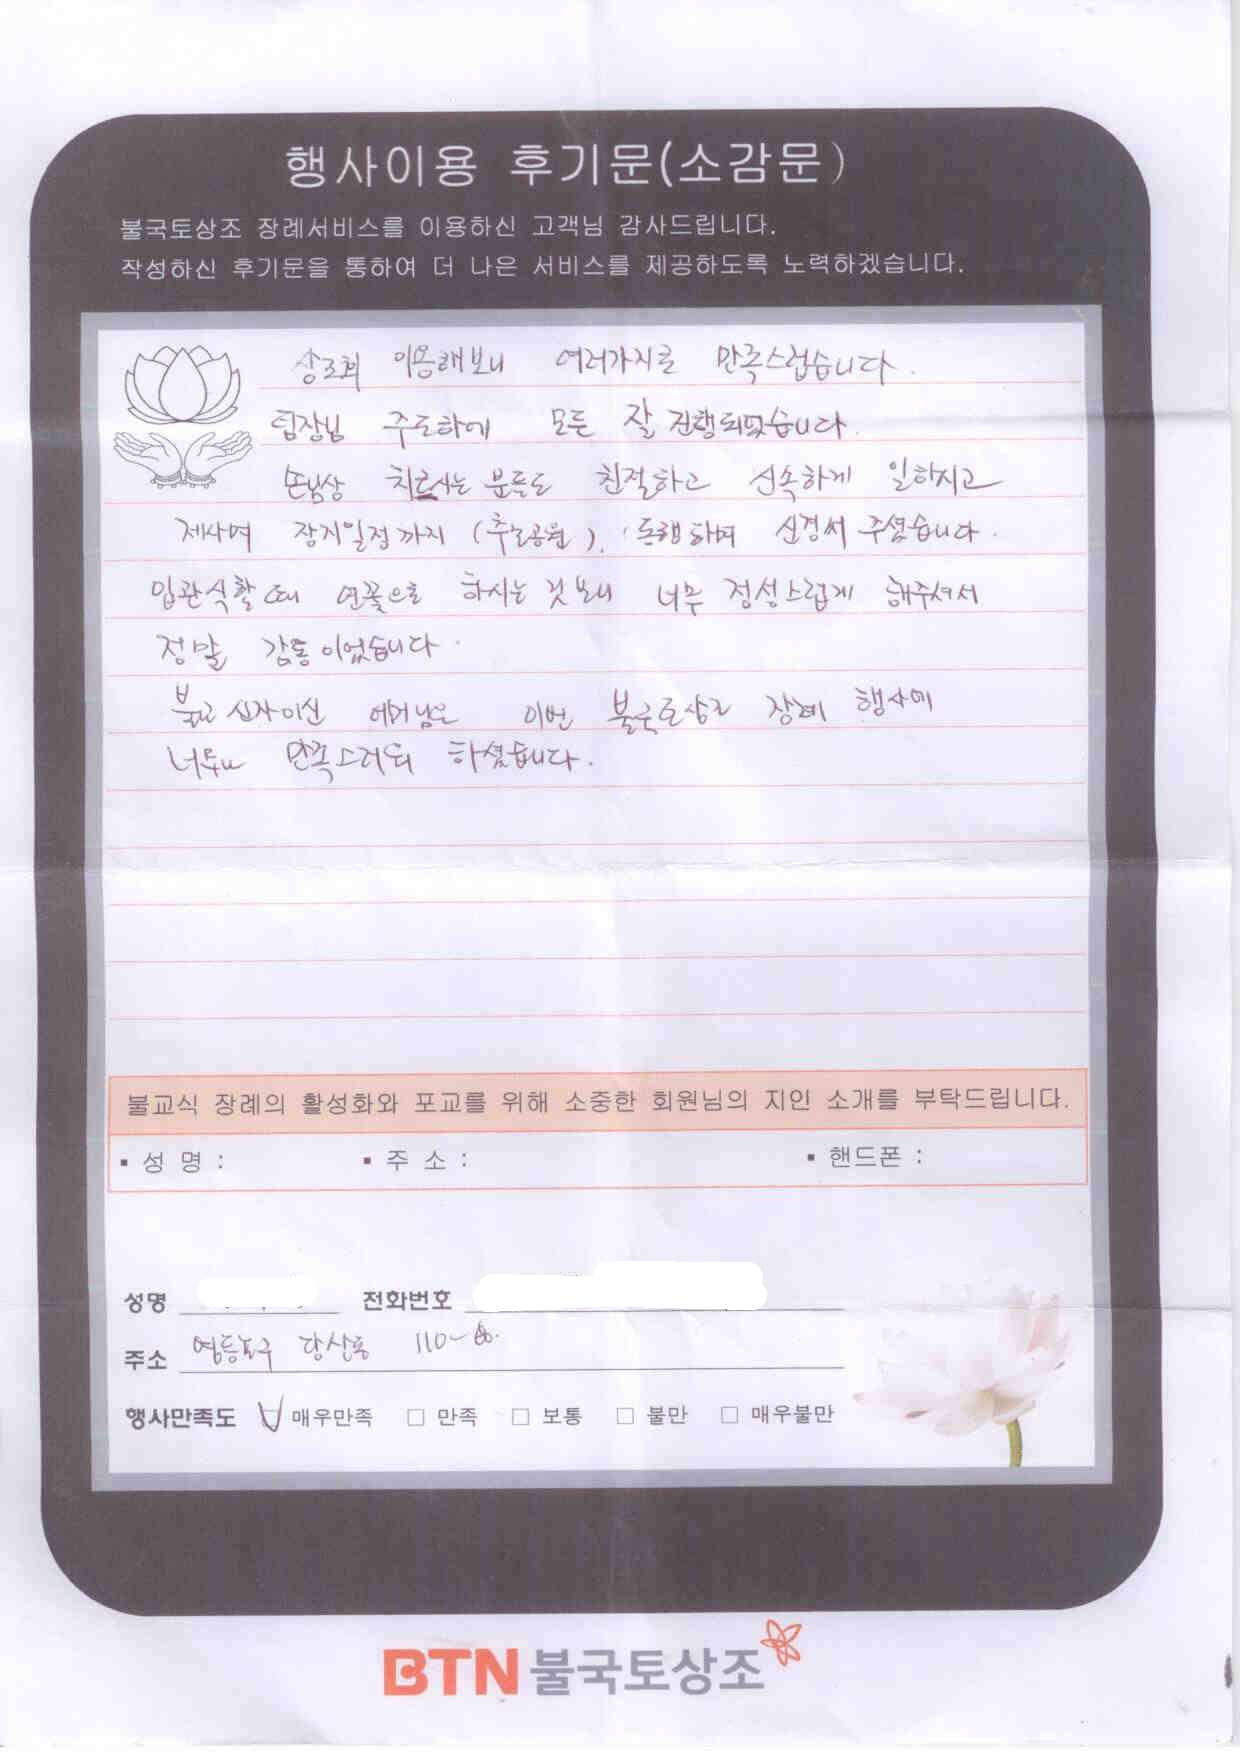 행사이용 후기문(소감문)
불국토상조 장례서비스를 이용하신 고객님 감사드립니다.
작성하신 후기문을 통하여 더 나은 서비스를 제공하도록 노력하겠습니다.
상조회 이용해보니 여러가지로 만족스럽습니다.
팀장님 주도하에 모든 잘 진행되었습니다.
손님상 치르시는 분들도 친절하고 신속하게 일하시고
제사며 장지일정까지 (추모공원). 동행하며 신경써 주셨습니다.
입관식할 때 연꽃으로 하시는 것 보니 너무 정성스럽게 해주셔서
정말 감동이었습니다.
불교 신자이신 어머님은 이번 불국토상조 장례 행사에
만족스러워 하셨습니다.
불교식 장례의 활성화와 포교를 위해 소중한 회원님의 지인 소개를 부탁드립니다.
▪ 성 명 : ▪ 주 소 : ▪ 핸드폰 :
성명 전화번호
주소 영등포구 당산동
행사만족도 ☑ 매우만족 □ 만족 □ 보통 □ 불만 □ 매우불만
BTN 불국토상조